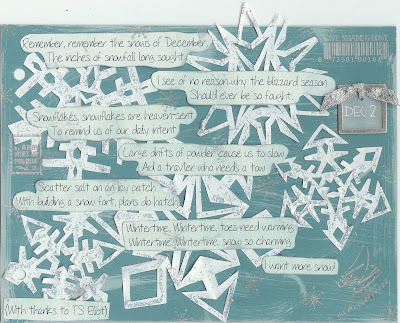 Remember, remember the snows of December,
The inches of snowfall long sought.
I see of no reason why the blizzard season
Should ever be so fought.
Snowflakes, snowflakes are heaven-sent
To remind us of our daily intent
Large drifts of powder cause us to slow
Aid a travler who needs a tow
Scatter salt on an icy patch
With building a snow fort, plans do hatch
Wintertime, Wintertime, toes need warming
Wintertime, Wintertime, snow so charming
I want more snow!
(With thanks to TS Eliot)
DEC 2